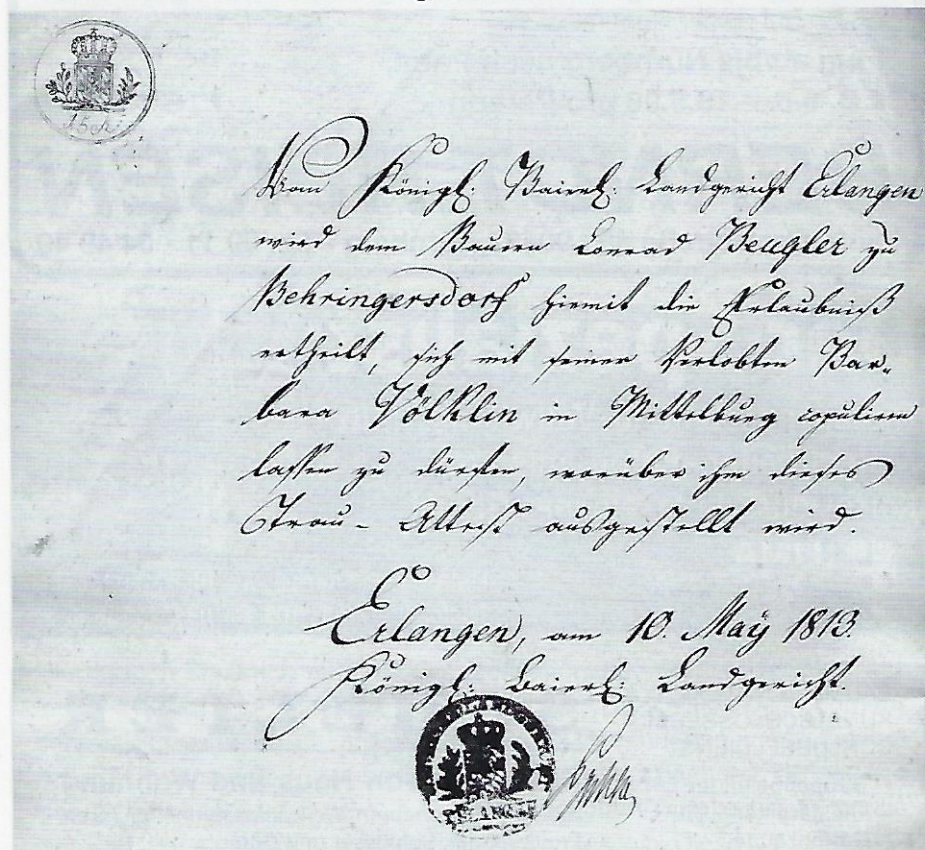 15 kr
Vom Königl: Baierl: Landgericht Erlangen
wird dem Bauern Conrad Beugler zu
Behringersdorf hiemit die Erlaubniß
ertheilt, sich mit seiner Verlobten Bar-
bara Völklin in Mittelburg copuliren
lassen zu dürfen, worüber ihm dieses
Trau-Attest ausgestellt wird.
Erlangen, am 10. Maÿ 1813.
Königl: Baierl: Landgericht.
ERLANGEN